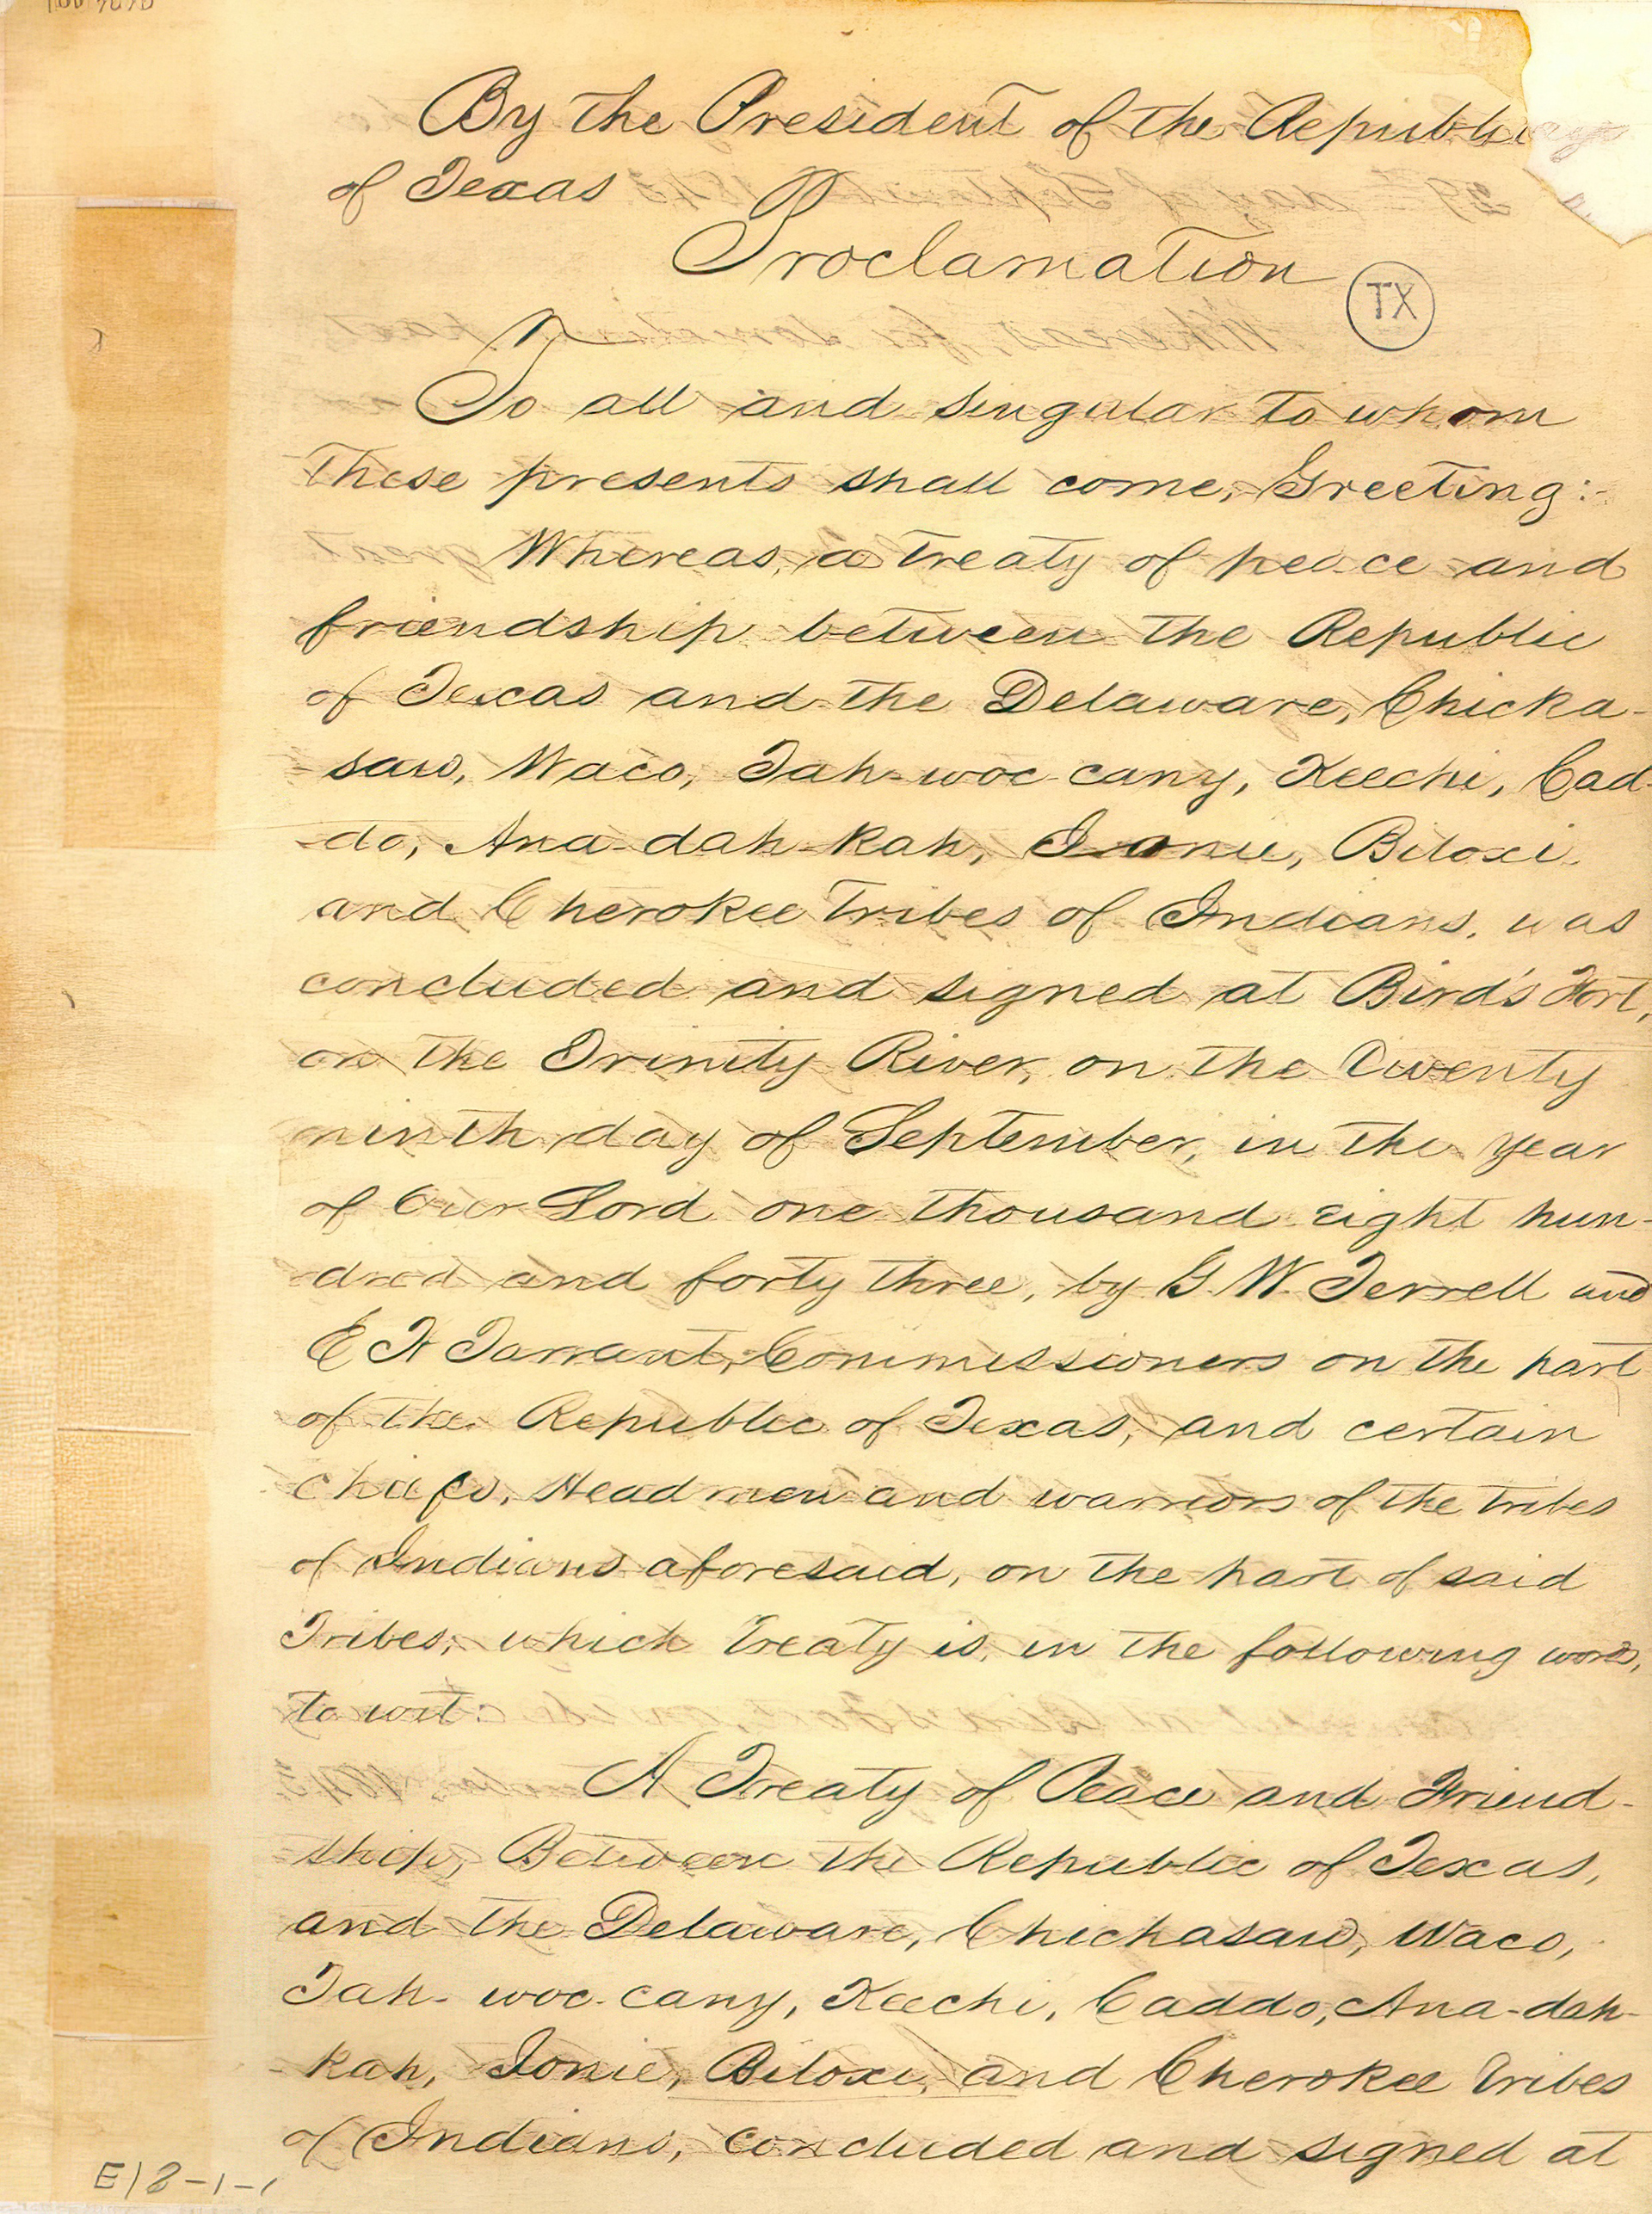 By the President of the Republic
of Texas
Proclamation
TX
To all and singular to whom
these presents shall come, Greeting:-
Whereas, a treaty of peace and
friendship between the Republic
of Texas and the Delaware, Chicka-
-saw, Waco, Tah-woc-cany, Keechi, Cad-
-do, Ana-dah-kah, Ionie, Biloxi,
and Cherokee tribes of Indians, was
concluded and signed at Bird's Fort,
on the Trinity River, on the Twenty
ninth day of September, in the year
of Our Lord one thousand eight hun-
-dred and forty three, by G. W. Terrell and
E H Tarrant, Commissioners on the part
of the Republic of Texas, and certain
chiefs, Head men and warriors of the tribes
of Indians aforesaid, on the part of said
Tribes; which treaty is, in the following words,
to wit:
A Treaty of Peace and Friend-
-ship, Between the Republic of Texas,
and the Delaware, Chickasaw, Waco,
Tah-woc-cany, Keechi, Caddo, Ana-dah-
-kah, Ionie, Biloxi, and Cherokee tribes
of Indians, concluded and signed at
E18-1-1